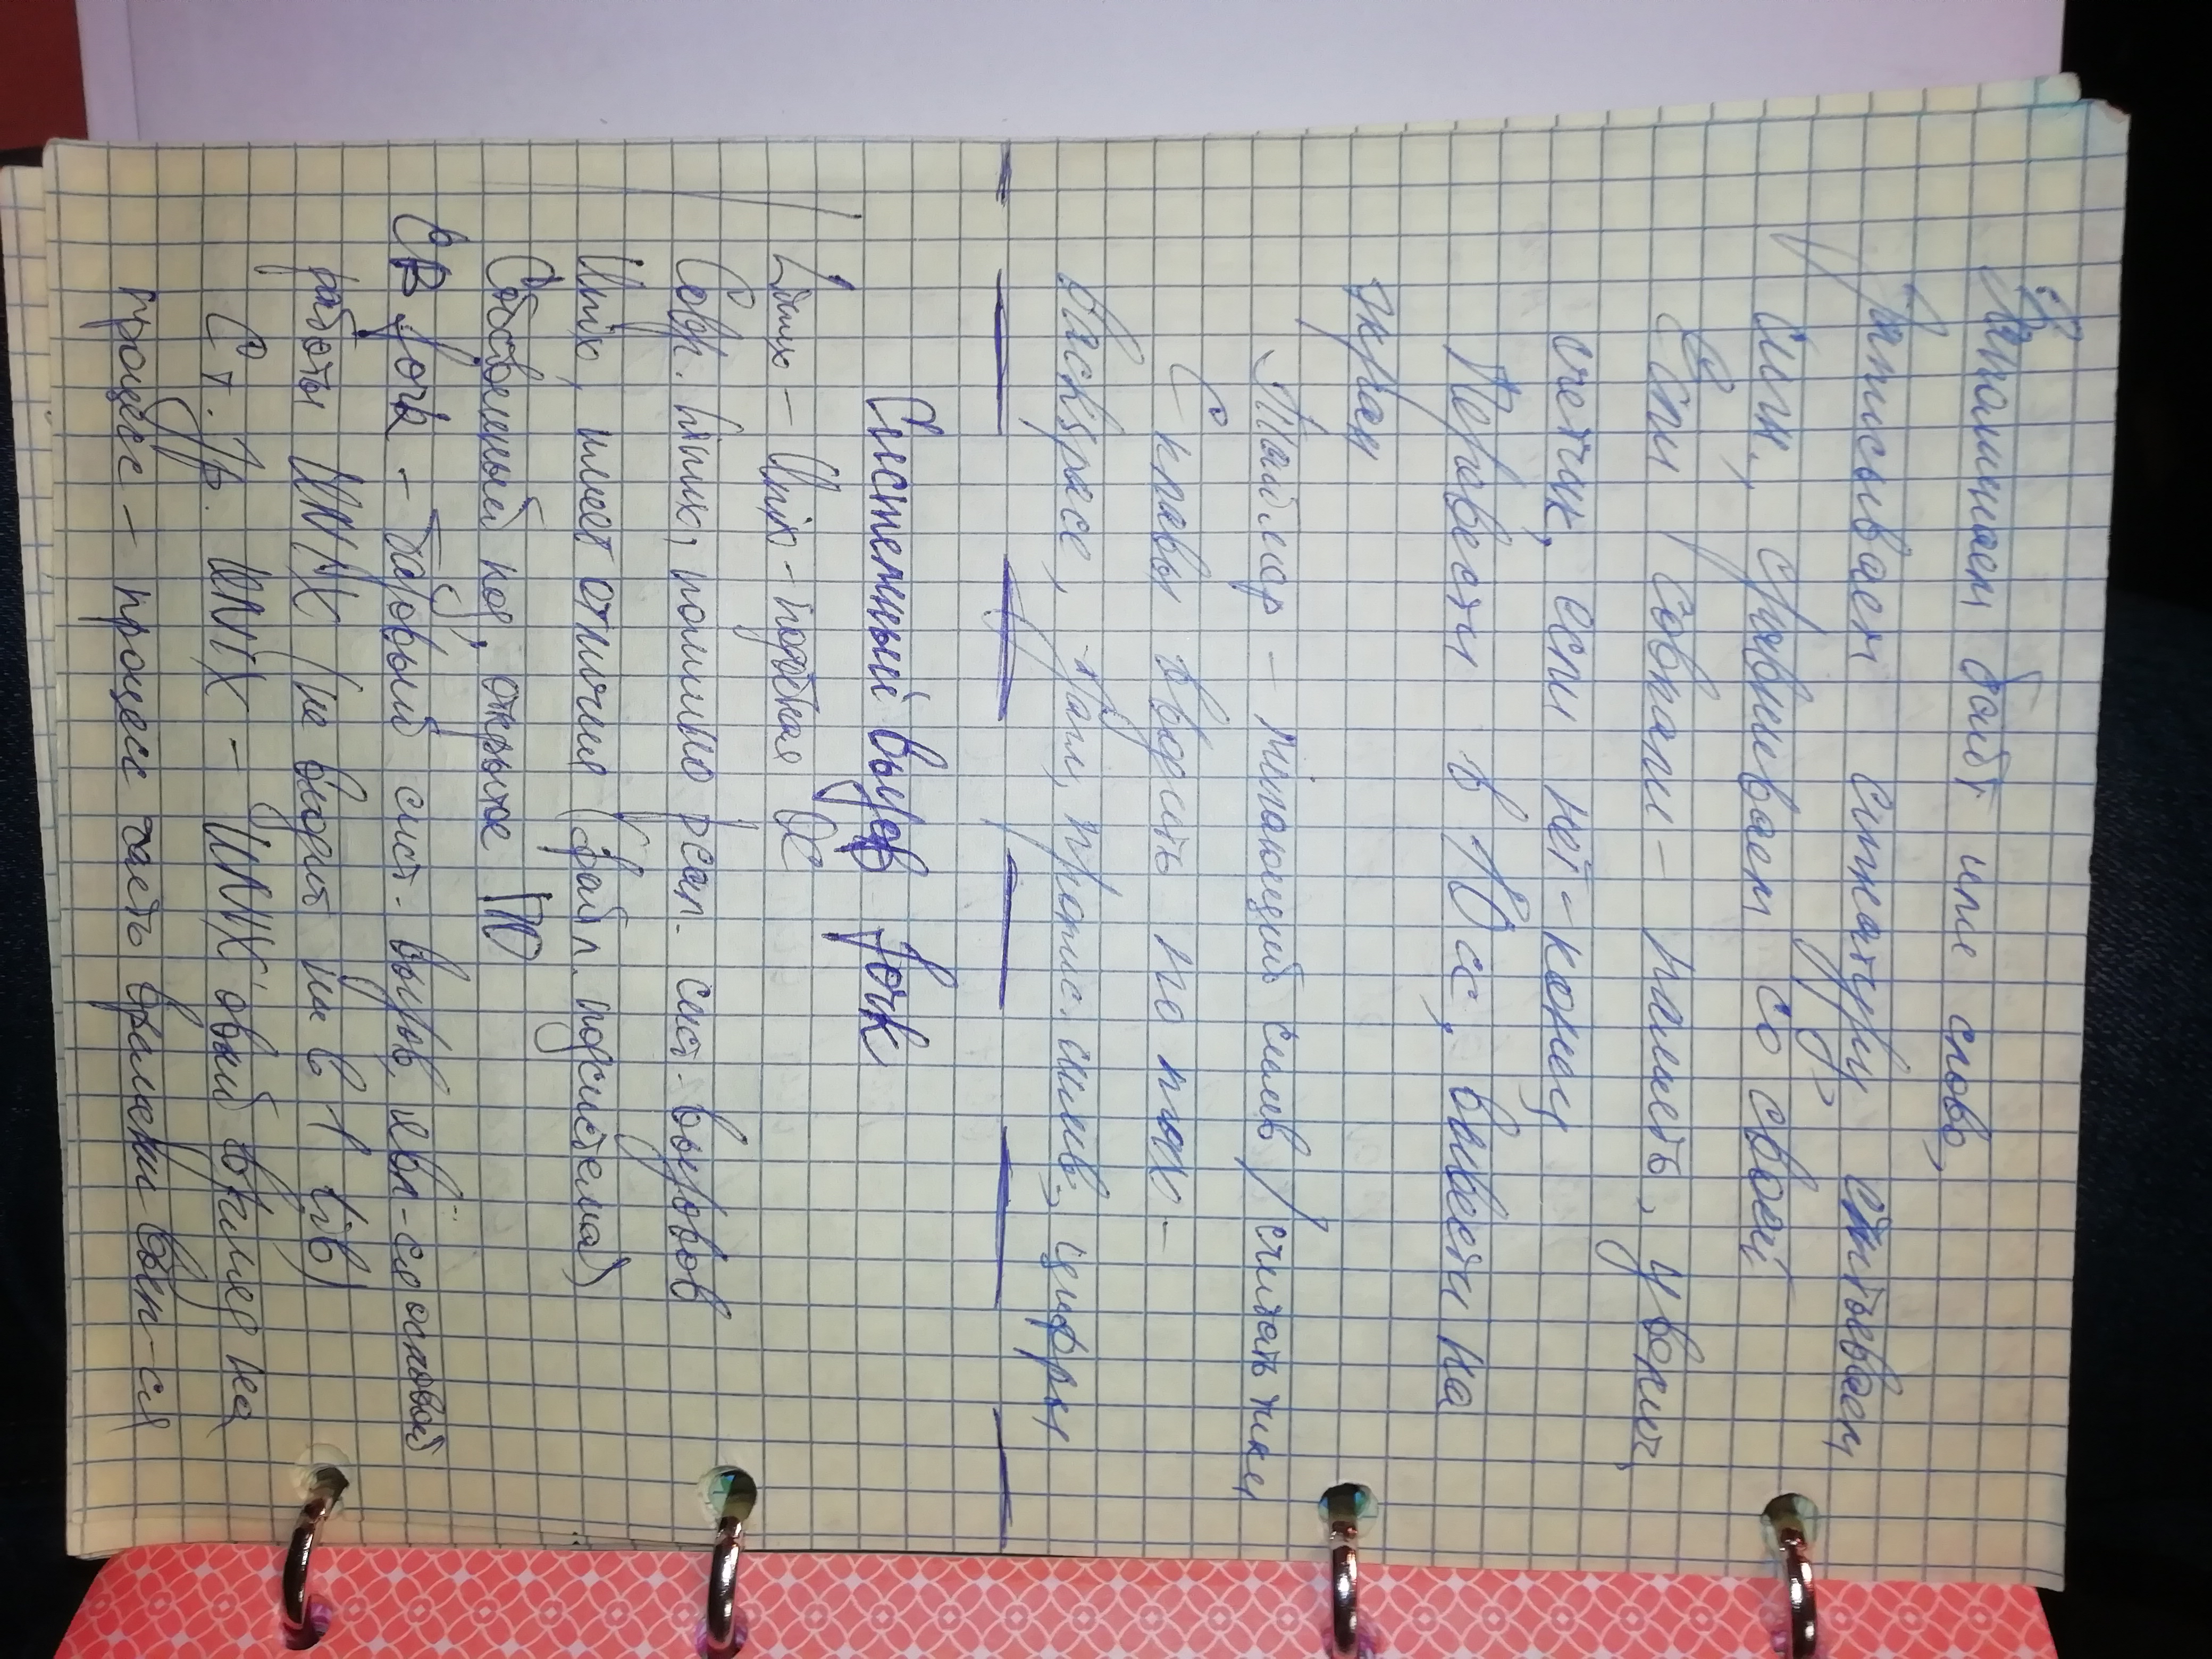 Запоминаем байт или слово,
Записываем сигнатуру, считываем
сигн., сравниваем со своей
Если совпали – память, увелич,
счетчик, если нет – конец
Перевести в 10 сс, вывести на
экран
Таймер – мигающий симв / считать тики
С клавы вводить по max –
backspace, загл, пропис. симв., цифры
Системный вызов fork
Linux – Unix – подобная ОС
Совр. Linux, помимо реал. сист. вызовов
Unix, имеет отличия (файл. подсистема)
Собственный код, открытое ПО
СВ fork – базовый сист. вызов, явл-ся основой
работы UNIX (не входит ни в 1 lib)
С т. зр. UNIX – UNIX'овый взгляд на
процесс – процесс часть времени вып-ся